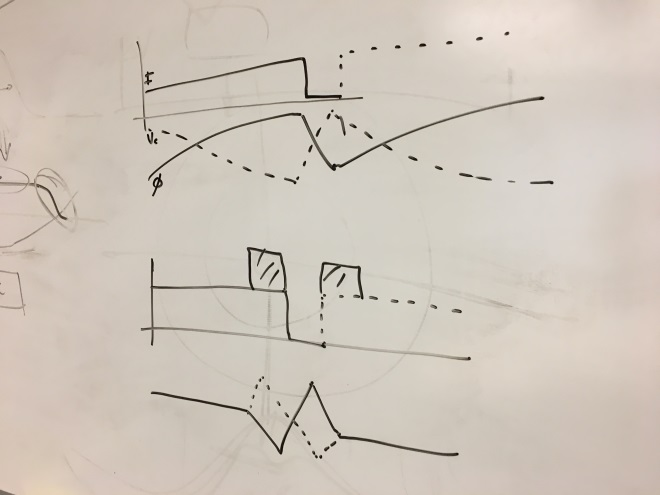 I
Vc
ϕ